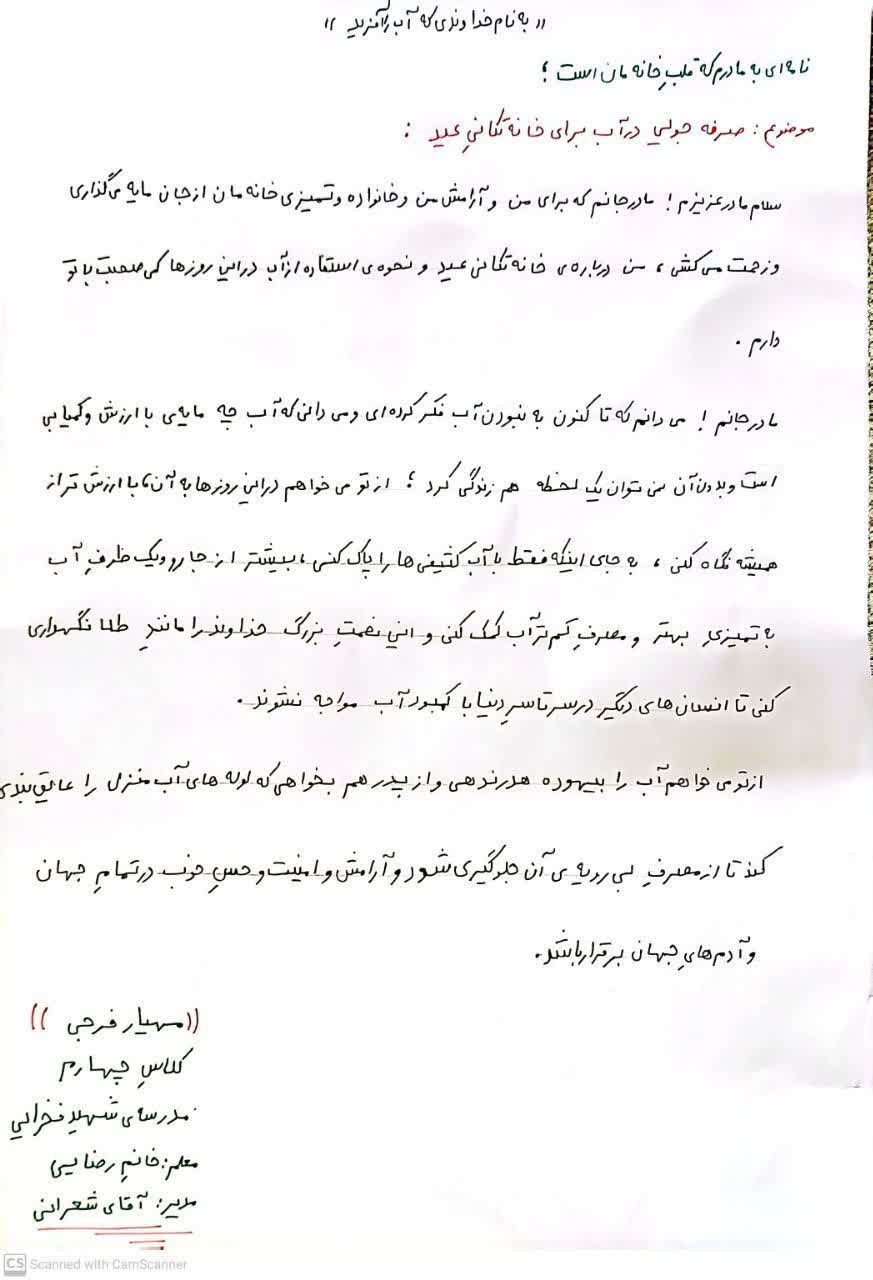 « به نام خداوندی که آب را آفرید »
نامه‌ای به مادرم که قلبِ خانه مان است ؛
موضوع : صرفه جویی در آب برای خانه تکانیِ عید :
سلام مادر عزیزم ! مادر جانم که برای من و آرامش من و خانواده و تمیزی خانه مان از جان مایه می‌گذاری
و زحمت می‌کشی ، من درباره ی خانه تکانی عید و نحوه ی استفاده از آب در این روزها کمی صحبت با تو
دارم .
مادر جانم ! می دانم که تا کنون به نبودن آب فکر کرده ای و می دانی که آب چه مایه ی با ارزش و کمیابی
است و بدون آن نمی توان یک لحظه هم زندگی کرد ؛ از تو می خواهم در این روزها به آن ، با ارزش تر از
همیشه نگاه کنی ، به جای اینکه فقط با آب کثیفی ها را پاک کنی ، بیشتر از جارو و یک ظرفِ آب
به تمیزیِ بهتر و مصرفِ کم ترِ آب کمک کنی و این نعمتِ بزرگ خداوند را مانندِ طلا نگهداری
کنی تا انسان های دیگر در سرتاسرِ دنیا با کمبود آب مواجه نشوند .
از تو می خواهم آب را بیهوده هدر ندهی و از پدر هم بخواهی که لوله های آب منزل را عایق بندی
کند تا از مصرفِ بی رویه ی آن جلوگیری شود و آرامش و امنیت و حسِ خوب در تمامِ جهان
و آدم هایِ جهان برقرار باشد .
(( مهیار فرجی ))
کلاسِ چهارم
مدرسه‌ی شهید فخرایی
معلم : خانم رضایی
مدیر : آقای شعرانی
CS Scanned with CamScanner